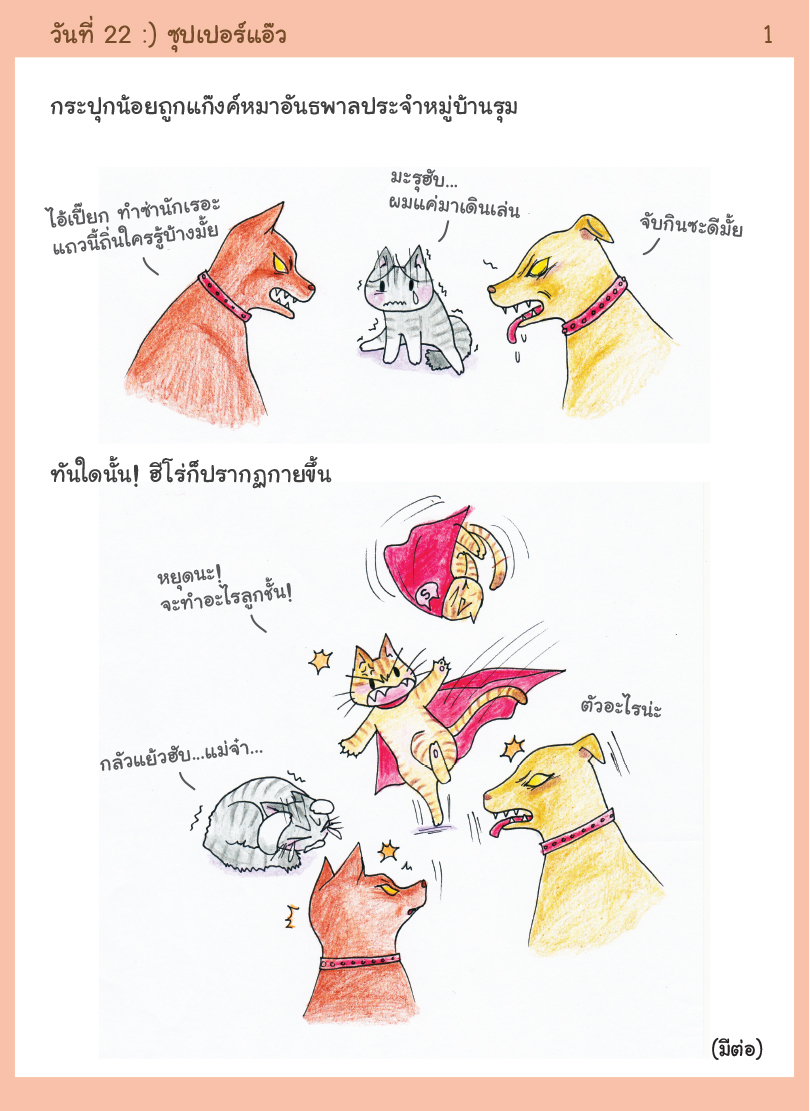 วันที่ 22 :) ซุปเปอร์แอ๊ว
1
กระปุกน้อยถูกแก๊งค์หมาอันธพาลประจำหมู่บ้านรุม
ไอ้เปี๊ยก ทำซ่านักเรอะ
แถวนี้ถิ่นใครรู้บ้างมั้ย
มะรุฮับ...
ผมแค่มาเดินเล่น
จับกินซะดีมั้ย
ทันใดนั้น! ฮีโร่ก็ปรากฏกายขึ้น
หยุดนะ!
จะทำอะไรลูกชั้น!
S
ตัวอะไรน่ะ
กลัวแย้วฮับ...แม่จ๋า...
(มีต่อ)